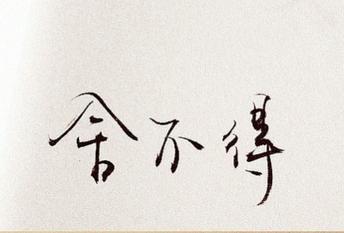 舍不得